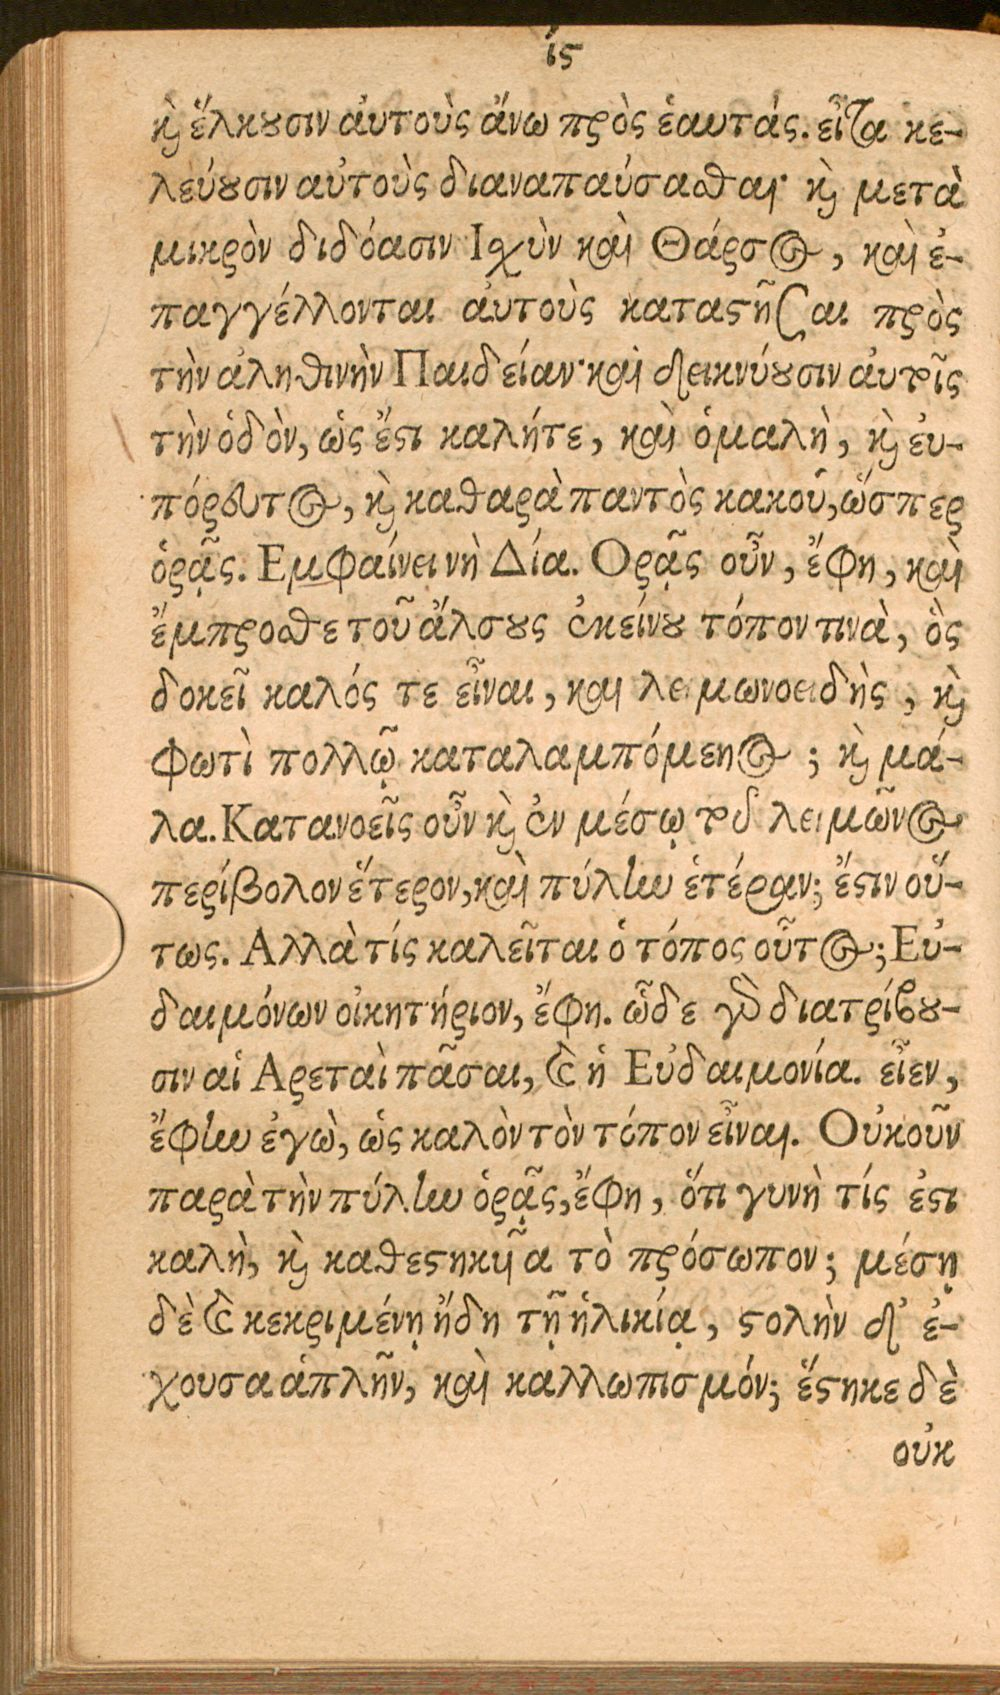 ις
καὶ ἕλκουσιν ἀυτοὺς ἄνω πρὸς ἑαυτάς. εἶτα κε-
λεύουσιν αὐτοὺς διαναπαύσασθαι· καὶ μετὰ
μικρὸν διδόασιν Ισχὺν καὶ Θάρσος, καὶ ἐ-
παγγέλλονται ἀυτοὺς καταστῆσαι πρὸς
τὴν ἀληθινὴν Παιδείαν· καὶ δεικνύουσιν ἀυτοῖς
τὴν ὁδὸν, ὡς ἔστι καλήτε, καὶ ὁμαλὴ, καὶ ἐυ-
πόρευτος, καὶ καθαρὰ παντὸς κακοῦ, ὥσπερ
ὁρᾷς. Εμφαίνει νὴ Δία. Ορᾷς οὖν, ἔφη, καὶ
ἔμπροσθε τοῦ ἄλσους ἐκείνου τόπον τινὰ, ὃς
δοκεῖ καλός τε εἶναι, και λειμωνοειδὴς, καὶ
φωτὶ πολλῷ καταλαμπόμενος; καὶ μά-
λα. Κατανοεῖς οὖν καὶ ἐν μέσῳ τοῦ λειμῶνος
περίβολον ἕτερον, καὶ πύλην ἑτέραν; ἔστιν οὕ-
τως. Αλλὰ τίς καλεῖται ὁ τόπος οὗτος; Εὐ-
δαιμόνων οἰκητήριον, ἔφη. ὧδε γὰρ διατρίβου-
σιν αἱ Αρεταὶ πᾶσαι, καὶ ἡ Εὐδαιμονία. εἶεν,
ἔφην ἐγὼ, ὡς καλὸν τὸν τόπον εἶναι. Οὐκοῦν
παρὰ τὴν πύλην ὁρᾷς, ἔφη, ὅτι γυνὴ τίς ἐστι
καλὴ, καὶ καθεστηκυῖα τὸ πρόσωπον; μέσῃ
δὲ καὶ κεκριμένῃ ἤδη τῇ ἡλικίᾳ, στολὴν δ' ἐ-
χουσα ἁπλῆν, καὶ καλλωπισμόν; ἕστηκε δὲ
οὐκ